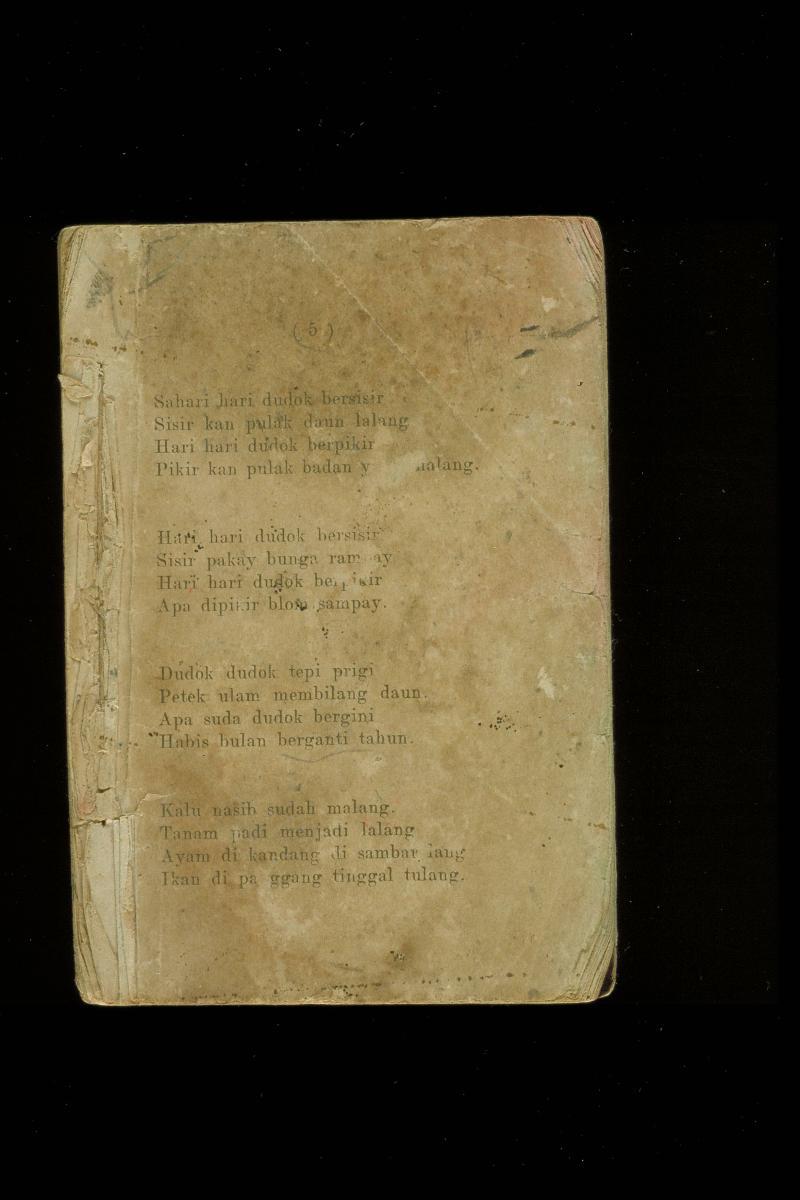 ( 5 )
Sahari hari dudok bersisir
Sisir kan pulak daun lalang
Hari hari dudok berpikir
Pikir kan pulak badan y malang.
Hari hari dudok bersisir
Sisir pakay bunga rampay
Hari hari dudok berpikir
Apa dipikir blom sampay.
Dudok dudok tepi prigi
Petek ulam membilang daun.
Apa suda dudok bergini
Habis bulan berganti tahun.
Kalu nasib sudah malang.
Tanam padi menjadi lalang
Ayam di kandang di sambar lang
Ikan di pa ggang tinggal tulang.